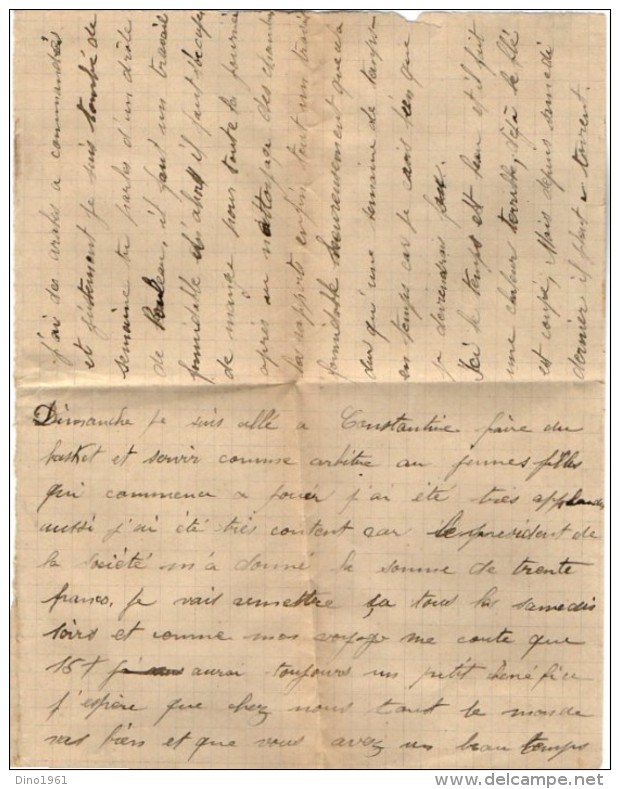 j'ai des arabes a commandés
et justement je suis tombé de
semaine tu parles d'un drôle
de rouleau, il faut un travail
formidable d'abord il faut s'occuper
de mange pour toute la journée
après au nettoyage des chambres
les rapports enfin tout un travail
formidable heureusement que ca
dur qu'une semaine de temps
en temps car je crois bien que
je deviendrai fou.
Ici le temps est beau et il fait
une chaleur terrible, déjà le blé
est coupé, Mais depuis samedi
dernier il pleut a torrent.
Dimanche je suis allé a Constantine faire du
basket et servir comme arbitre au jeunes filles
qui commence a jouer j'ai été très applaudis
aussi j'ai été très content car le président de
la société m'a donné la somme de trente
francs. Je vais remettre ça tous les samedis
soirs et comme mon voyage me coute que
15f j'aurai toujours un petit bénéfice
j'espère que chez nous tout le monde
vas bien et que vous avez un beau temps
Dino1961
www.delcampe.net